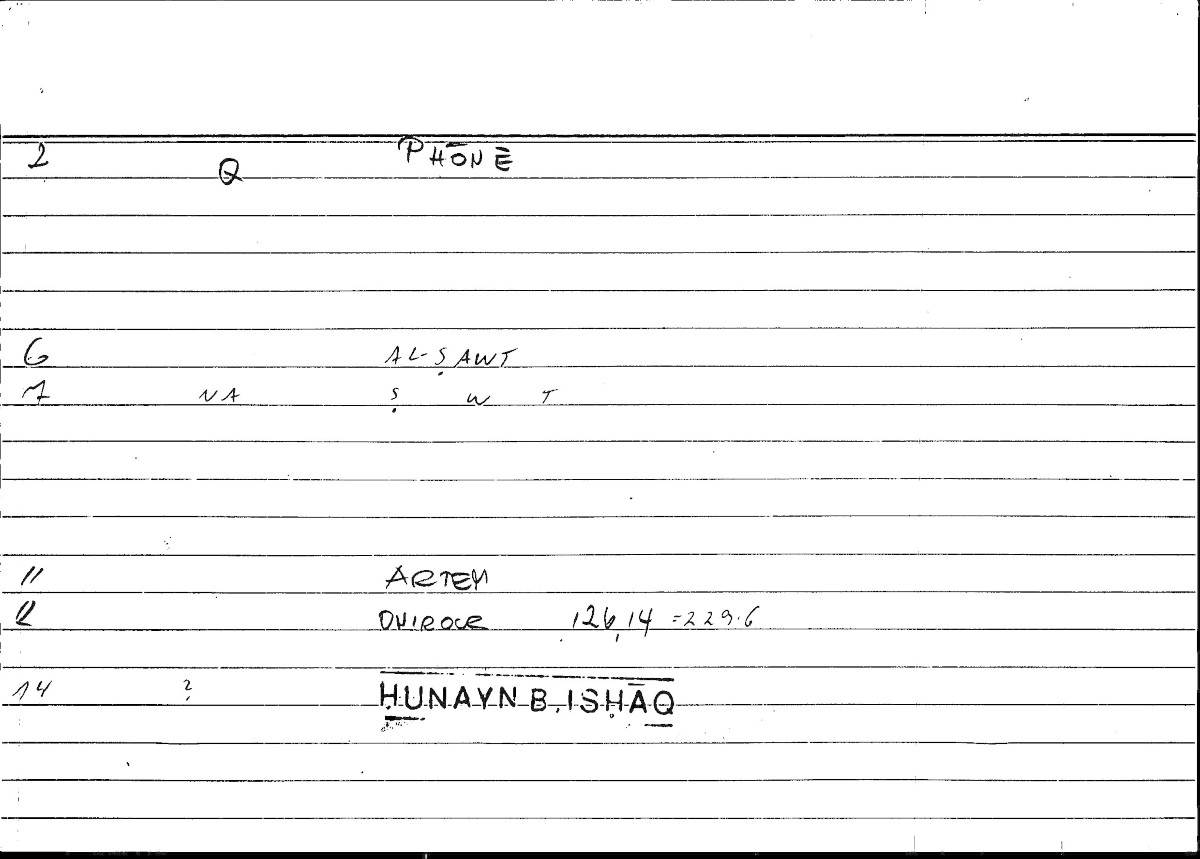 2 Q PHŌNĒ
6 AL-ṢAWT
7 NA Ṣ W T
11 ARTEM
12 ONIROCR 126,14 =229.6
14 ? ḤUNAYN B. ISḤĀQ